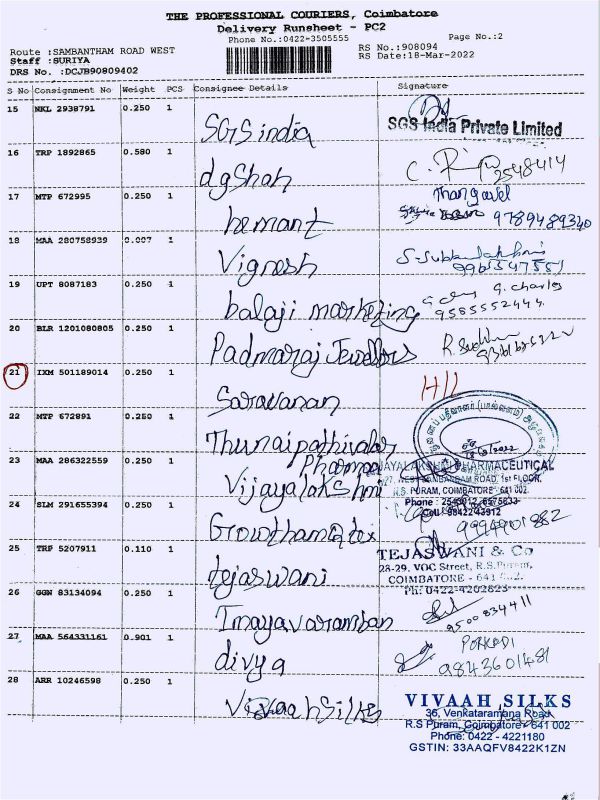 THE PROFESSIONAL COURIERS, Coimbatore
Delivery Runsheet - PC2
Phone No.:0422-3505555
Page No.:2
Route :SAMBANTHAM ROAD WEST
Staff :SURIYA
DRS No. :DCJB90809402
RS No.:908094
RS Date:18-Mar-2022
S No Consignment No Weight PCS Consignee Details Signature
15 NKL 2938791 0.250 1 SGS india SGS India Private Limited
16 TRP 1892865 0.580 1 dgshah 2548414
17 MTP 672995 0.250 1 hemant Thangavel 9789489340
18 MAA 280758939 0.007 1 Vignesh
19 UPT 8087183 0.250 1 balaji marketing G. charles 9585552444
20 BLR 1201080805 0.250 1 Padmaraj Jewellors
21 IXM 501189014 0.250 1 Saravanan H/L
22 MTP 672891 0.250 1 Thunaipathivalar
23 MAA 286322559 0.250 1 Vijayalakshmi Pharma
JAYALAKSHMI PHARMACEUTICAL
27, WEST SAMBANDAM ROAD, 1st FLOOR,
R.S. PURAM, COIMBATORE - 641 002.
Phone :
Cell : 98422 43912
24 SLM 291655394 0.250 1 Growthamatex 9994901882
25 TRP 5207911 0.110 1 tejaswani
TEJASWANI & Co
28-29, VOC Street, R.S.Puram,
COIMBATORE - 641 002.
Ph: 0422-4202823
26 GGN 83134094 0.250 1 Imayavaramban 9500834411
27 MAA 564331161 0.901 1 divya PORKODI 9843601481
28 ARR 10246598 0.250 1 Vivaahsilks
VIVAAH SILKS
36, Venkataramana Road
R.S Puram, Coimbatore - 641 002
Phone: 0422 - 4221180
GSTIN: 33AAQFV8422K1ZN